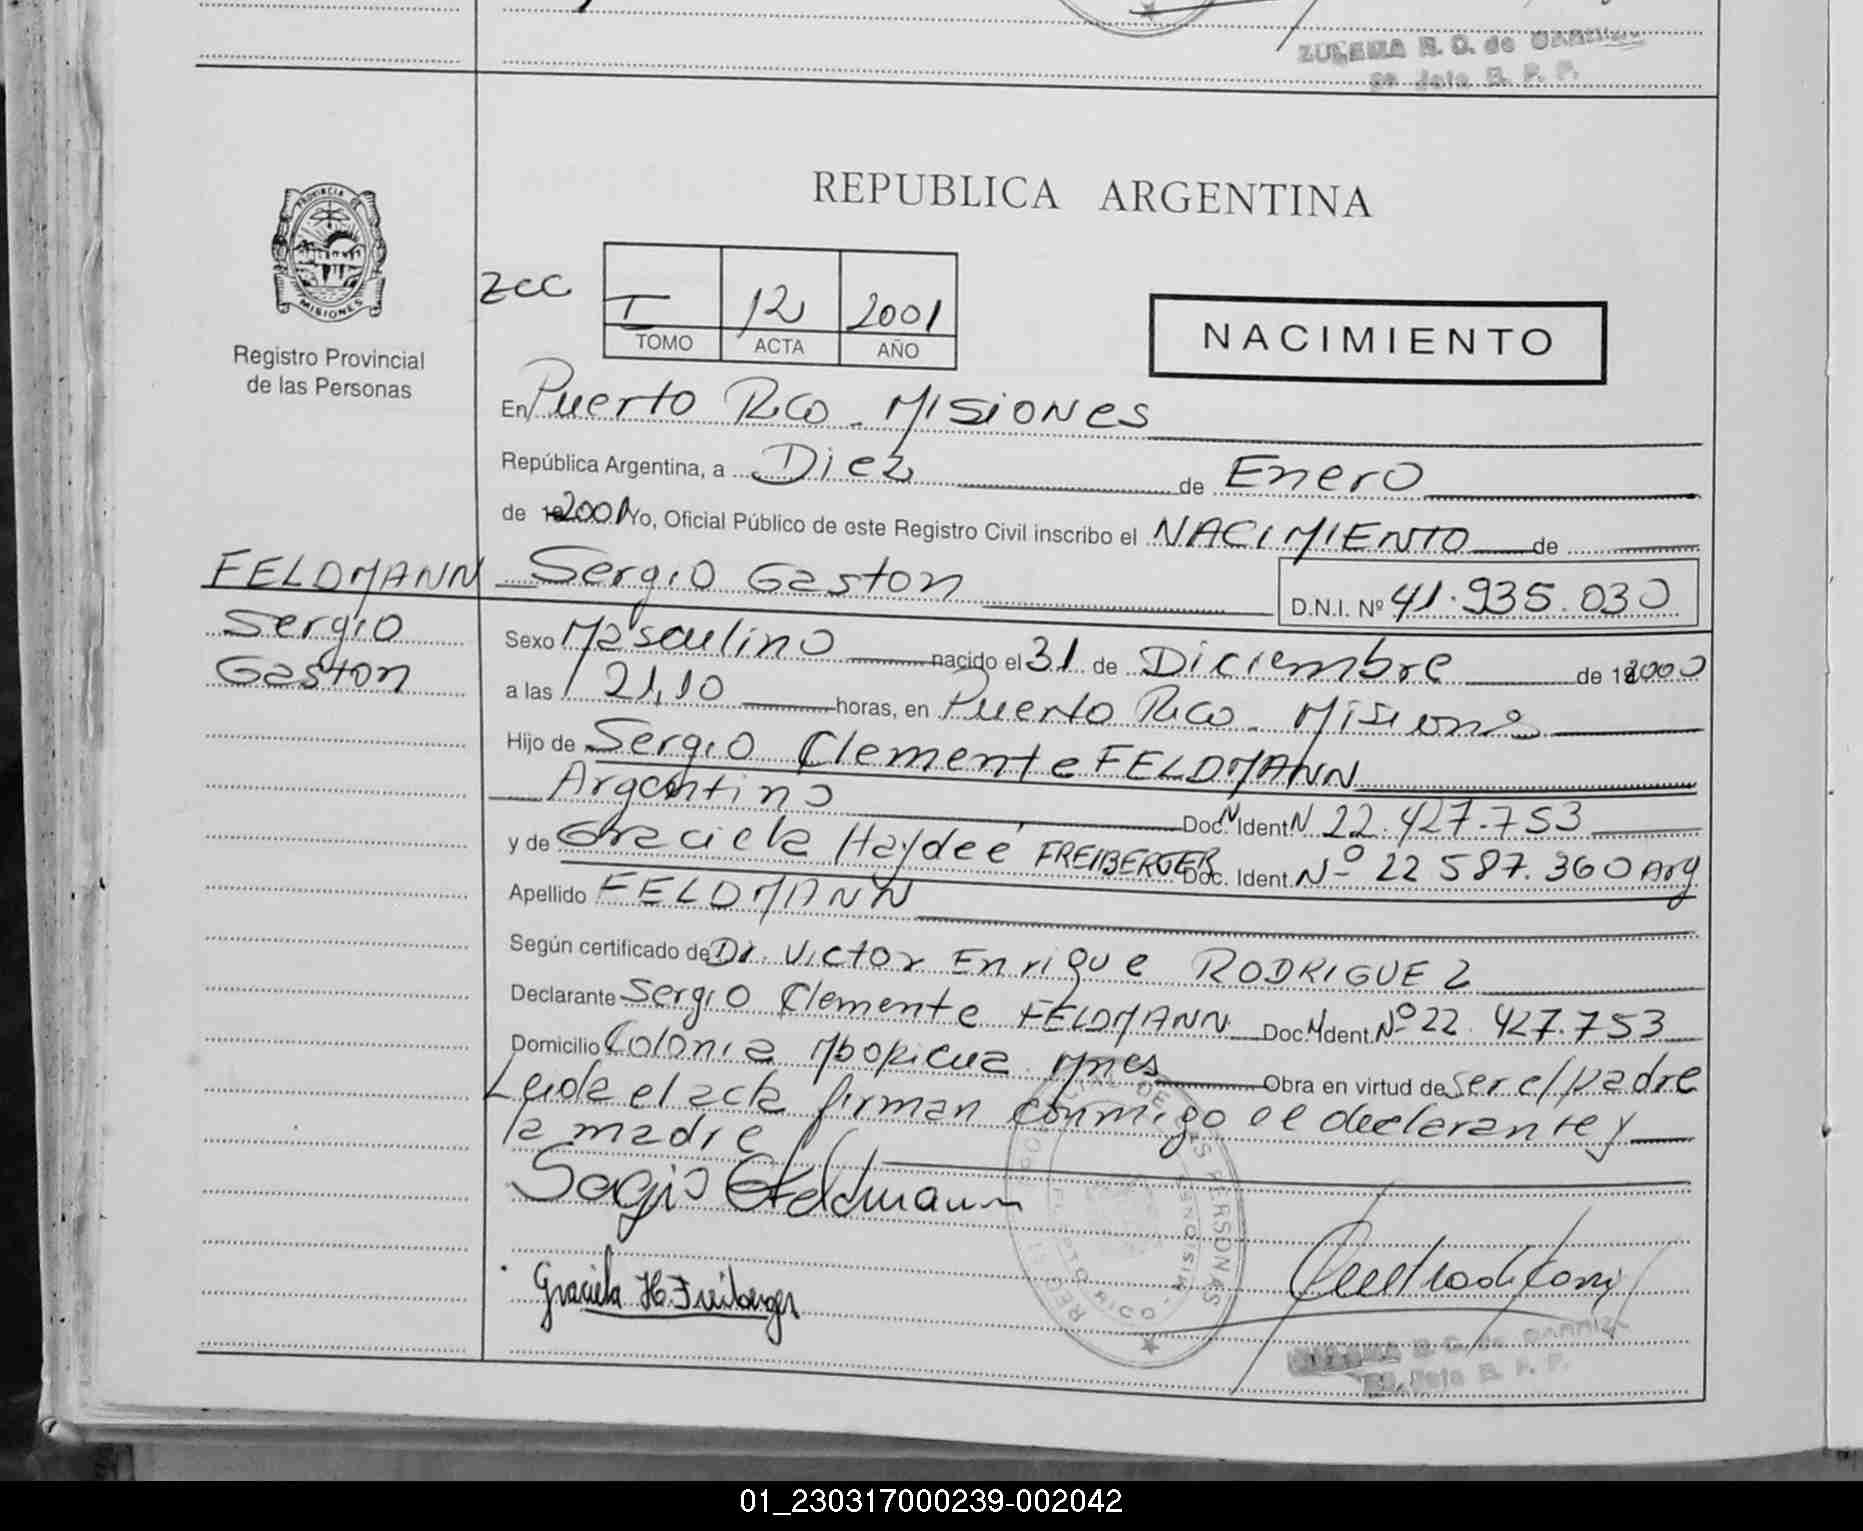 ZULEMA R. C. de
REPUBLICA ARGENTINA
PROVINCIA DE MISIONES
Registro Provincial
de las Personas
ZCC
I 12 2001
TOMO ACTA AÑO
NACIMIENTO
En Puerto Rico - Misiones
República Argentina, a Diez de Enero
de 19 2001 Yo, Oficial Público de este Registro Civil inscribo el NACIMIENTO de
FELDMANN
Sergio
Gaston
Sergio Gaston
D.N.I. Nº 41.935.030
Sexo Masculino nacido el 31 de Diciembre de 19 2000
a las 21,10 horas, en Puerto Rico - Misiones
Hijo de Sergio Clemente FELDMANN
Argentino Doc. Ident. N 22.427.753
y de Graciela Haydeé FREIBERGER Doc. Ident. Nº 22 587.360 Arg
Apellido FELDMANN
Según certificado de Dr. Victor Enrique RODRIGUEZ
Declarante Sergio Clemente FELDMANN Doc. Ident. Nº 22.427.753
Domicilio Colonia Mbopicua Mnes Obra en virtud de ser el padre
Leida el acta firman conmigo el declarante y
la madre
Sergio C Feldmann
Graciela H. Freiberger
REGISTRO PROVINCIAL DE LAS PERSONAS
PUERTO RICO - MISIONES
R. P. P.
01_230317000239-002042